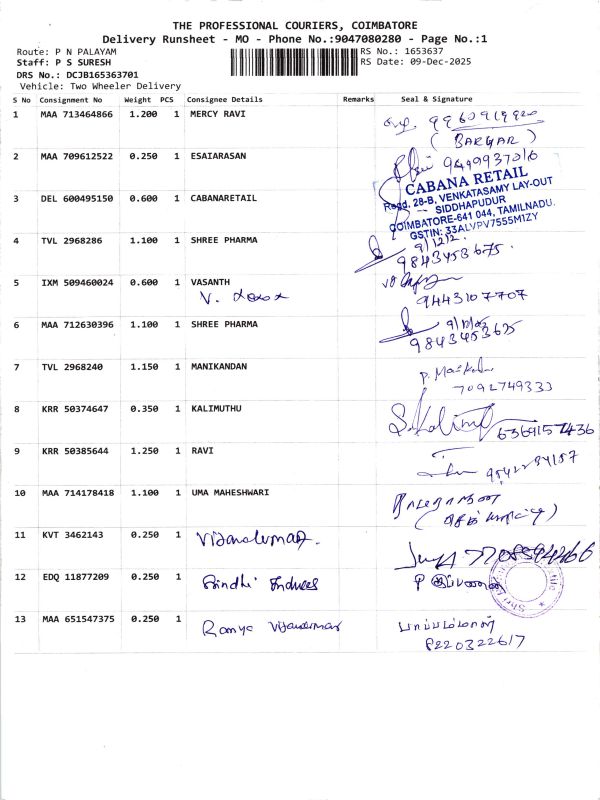 THE PROFESSIONAL COURIERS, COIMBATORE
Delivery Runsheet - MO - Phone No.:9047080280 - Page No.:1
Route: P N PALAYAM
RS No.: 1653637
Staff: P S SURESH
RS Date: 09-Dec-2025
DRS No.: DCJB165363701
Vehicle: Two Wheeler Delivery
S No Consignment No Weight PCS Consignee Details Remarks Seal & Signature
1 MAA 713464866 1.200 1 MERCY RAVI
(BARGAR)
2 MAA 709612522 0.250 1 ESAIARASAN
3 DEL 600495150 0.600 1 CABANARETAIL
CABANA RETAIL
Regd. 28-B, VENKATASAMY LAY-OUT
SIDDHAPUDUR
COIMBATORE-641 044, TAMILNADU.
GSTIN: 33ALVPV7555M1ZY
4 TVL 2968286 1.100 1 SHREE PHARMA
9843453675.
5 IXM 509460024 0.600 1 VASANTH
V.
9443107707
6 MAA 712630396 1.100 1 SHREE PHARMA
9843453675
7 TVL 2968240 1.150 1 MANIKANDAN
7092749333
8 KRR 50374647 0.350 1 KALIMUTHU
6369157436
9 KRR 50385644 1.250 1 RAVI
10 MAA 714178418 1.100 1 UMA MAHESHWARI
11 KVT 3462143 0.250 1 Vijayakumar.
12 EDQ 11877209 0.250 1 Sindhi
13 MAA 651547375 0.250 1 Ramya Vijayakumar
8220322617